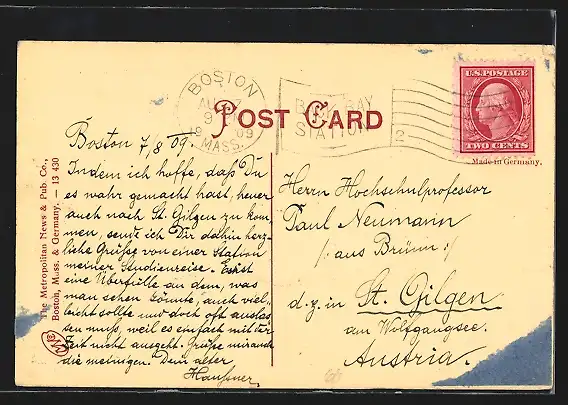 BOSTON
AUG
9
1909
MASS.
BACK BAY
STATION
2
POST CARD
U.S. POSTAGE
TWO CENTS
Made in Germany.
The Metropolitan News & Pub. Co.,
Boston, Mass. & Germany. — 13 430
Boston 7/8 09.
Indem ich hoffe, daß Du
es wahr gemacht hast, heuer
auch nach St. Gilgen zu kom-
men, sende ich Dir dahin herz-
liche Grüße von einer Station
meiner Studienreise. Es ist
eine Überfülle an dem, was
man sehen könnte, auch viel-
leicht sollte und doch oft auslas-
sen muß, weil es einfach mit der
Zeit nicht ausgeht. Grüße mir auch
die meinigen. Dein alter
Haußner.
Herrn Hochschulprofessor
Paul Neumann
/: aus Brünn :/
d. z. in St. Gilgen
am Wolfgangsee.
Austria.